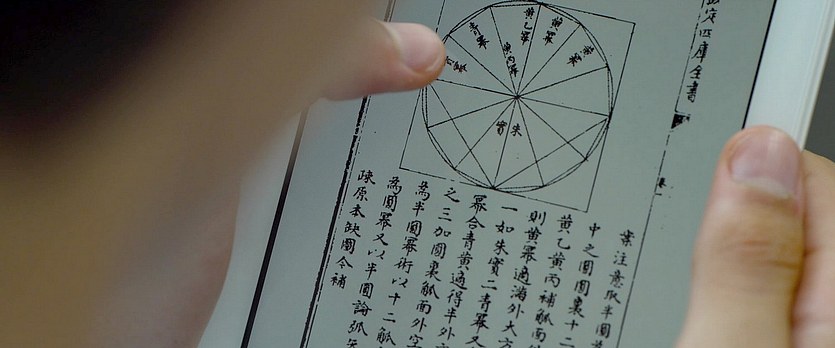 定四庫全書
卷一
黄乙冪
黄冪
青冪
黄丙冪
朱實
案注意取半圓
中之圓圓裏十二
黄乙黄丙補觚面
則黄冪適滿外大方
一如朱實二青冪又
冪合青黄適得半外
之三加圓裏觚面外空
為半圓冪術以十二觚
為圓冪又以半圓論弧矢
疎原本缺圖今補